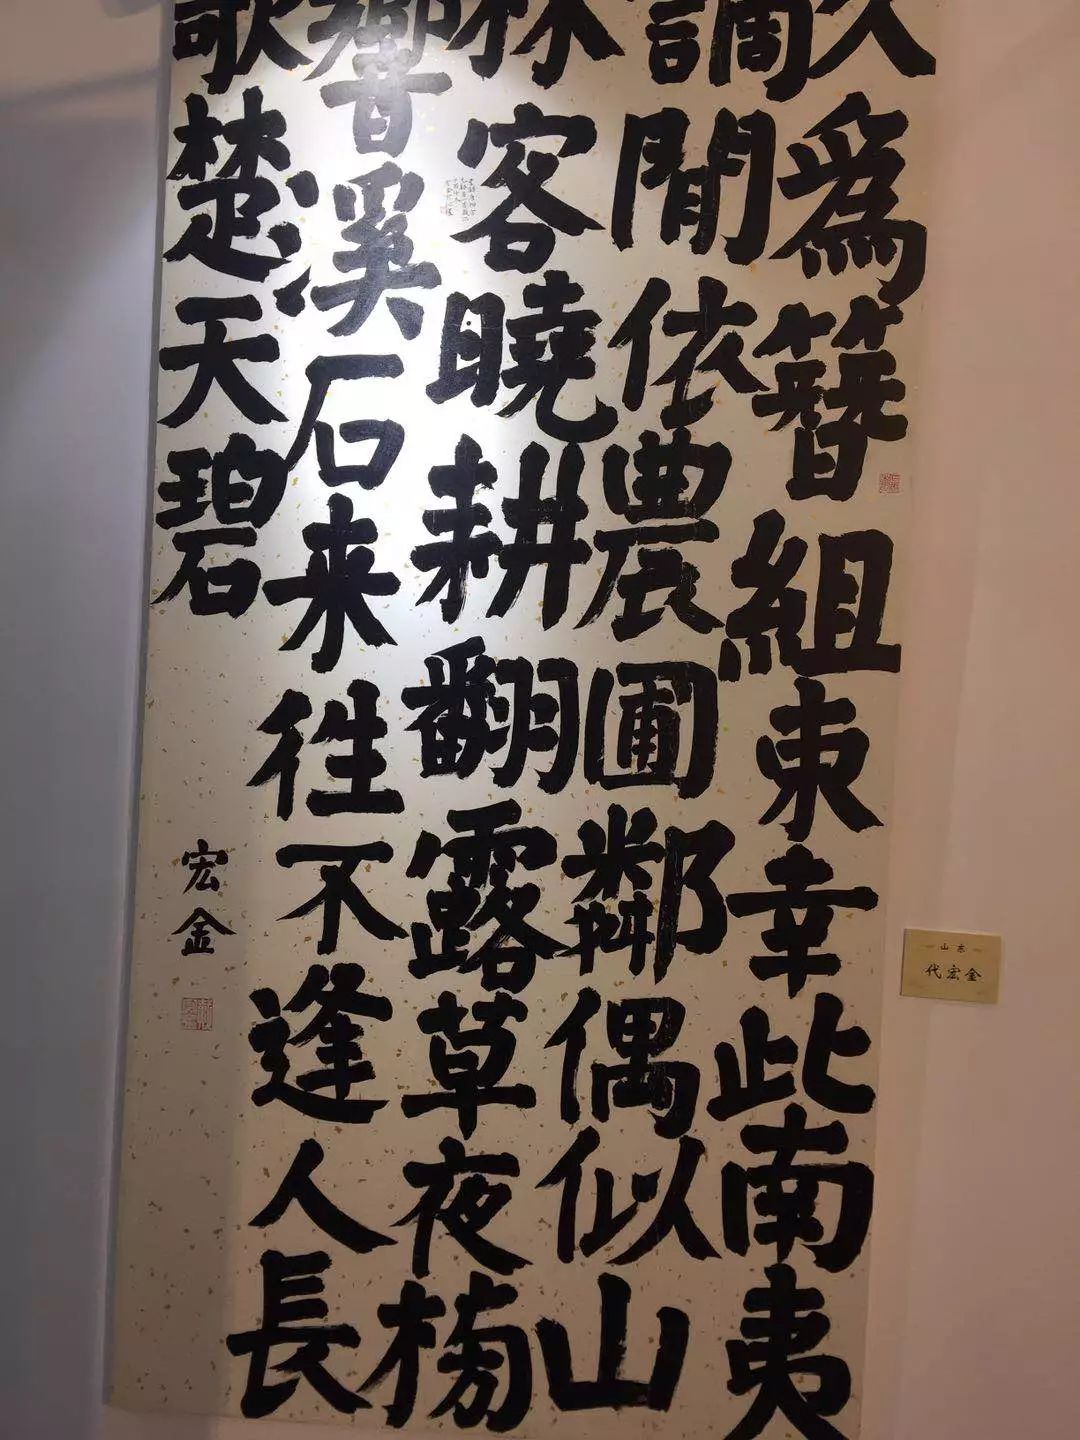 久為簪組束幸此南夷
謫閒依農圃鄰偶似山
林客曉耕翻露草夜榜
響溪石来往不逢人長
歌楚天碧
宏金
山东
代宏金